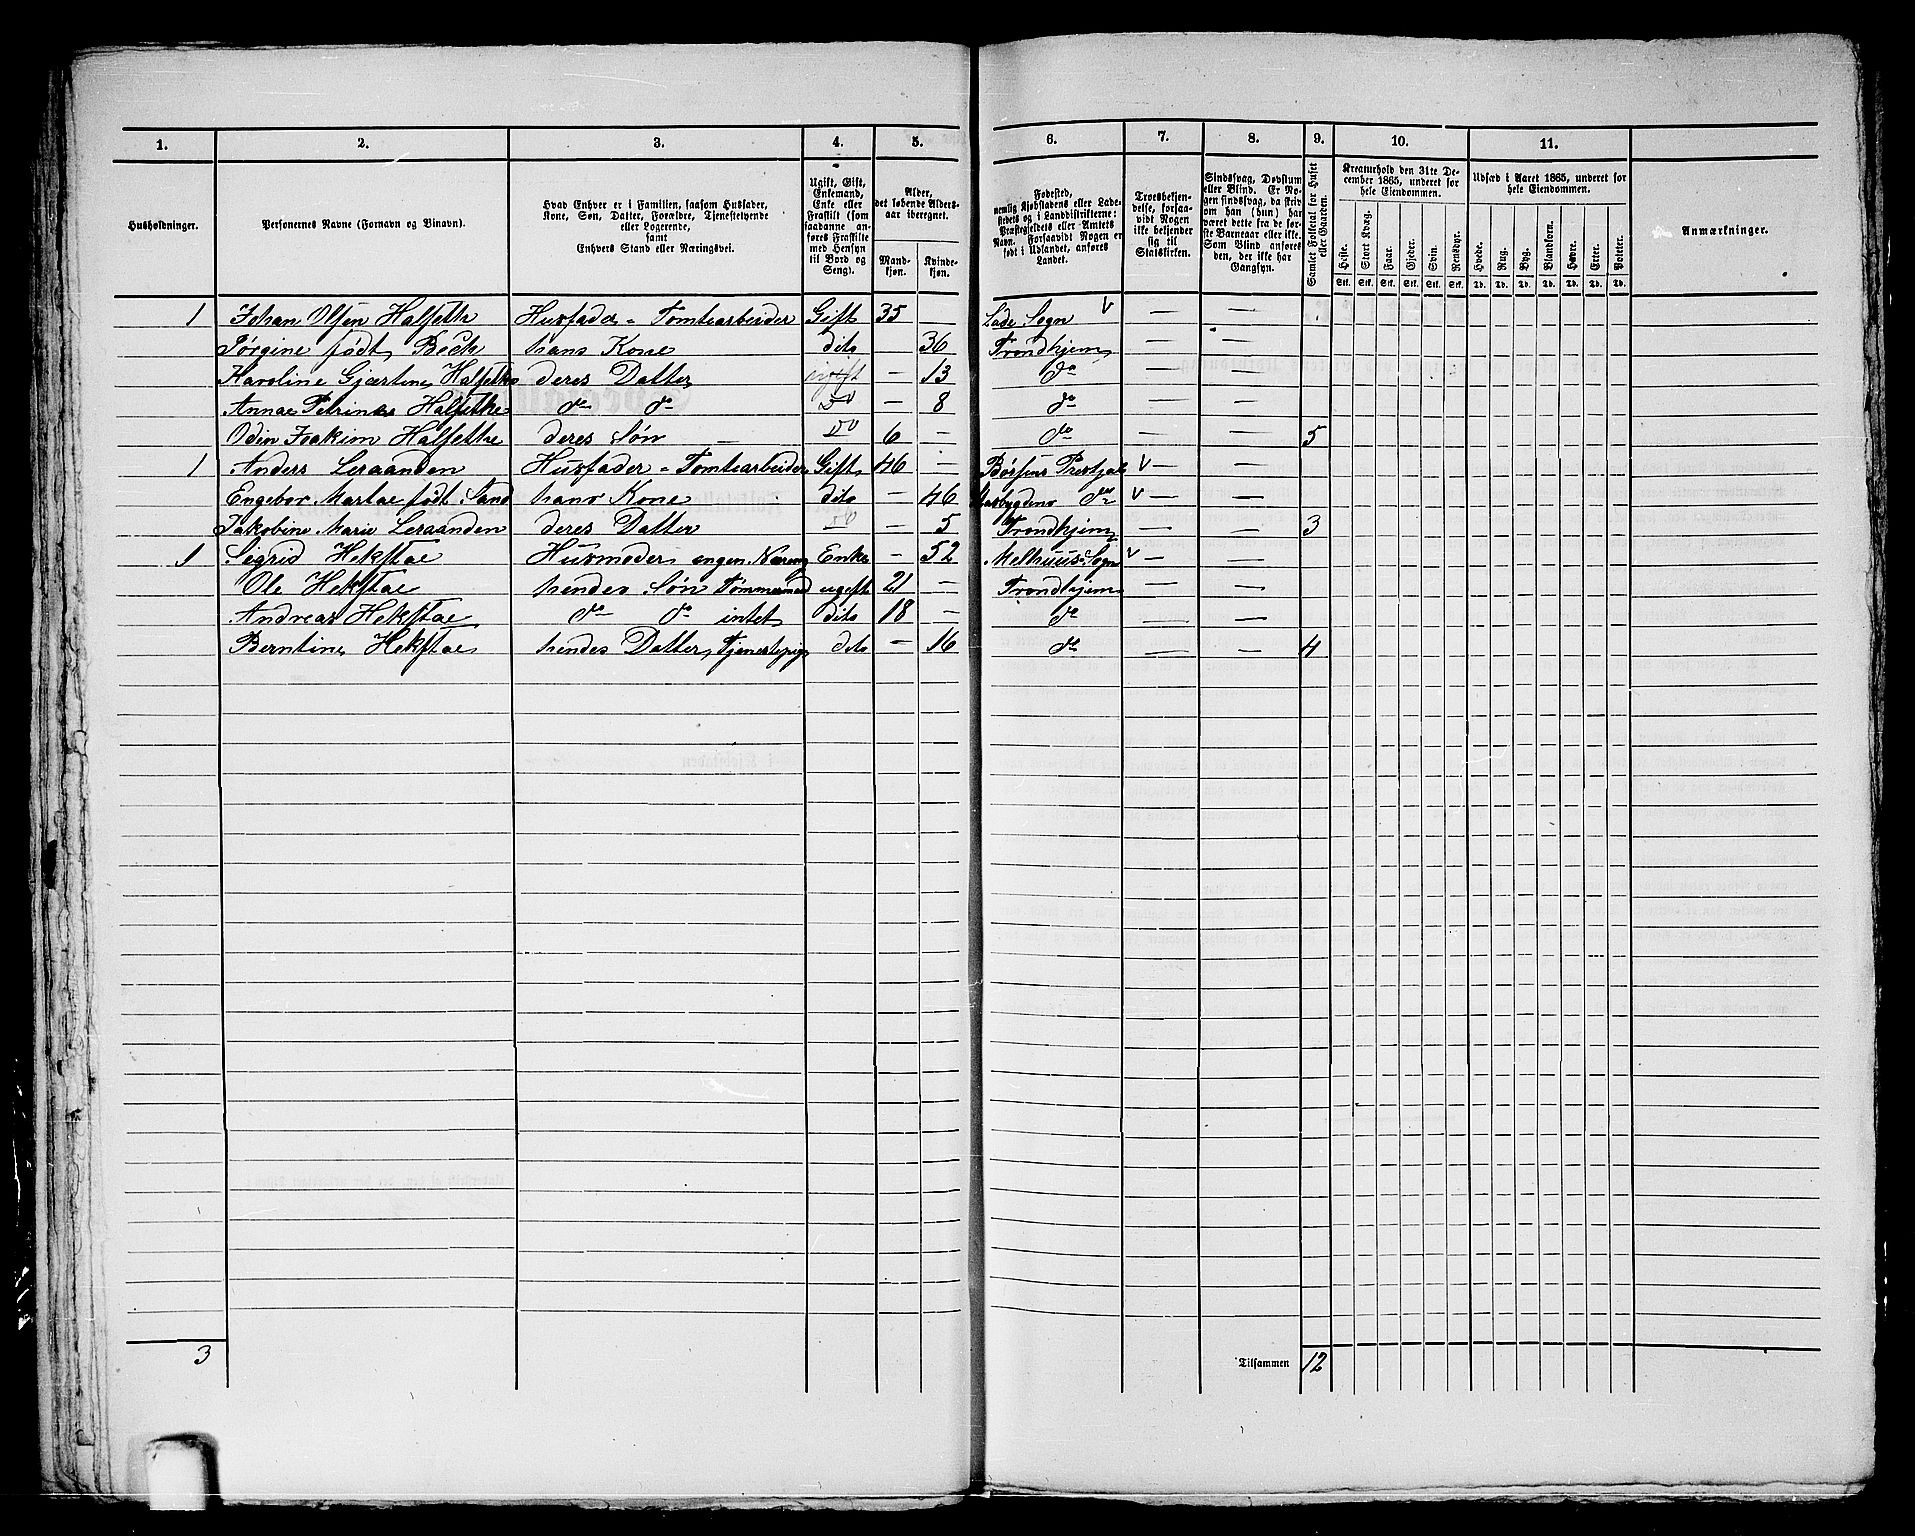 1. 2. 3. 4. 5. 6. 7. 8. 9. 10. 11.
Husholdninger.
Personernes Navne (Fornavn og Binavn).
Hvad Enhver er i Familien, saasom Husfader,
Kone, Søn, Datter, Forældre, Tjenestetyende
eller Logerende,
samt
Enhvers Stand eller Næringsvei.
Ugift, Gift,
Enkemand,
Enke eller
Fraskilt (som
saadanne an-
føres Fraskilte
med Hensyn
til Bord og
Seng).
Alder,
det løbende Alders-
aar iberegnet.
Mand-
kjøn.
Kvinde-
kjøn.
Fødested,
nemlig Kjøbstadens eller Lade-
stedets og i Landdistrikterne:
Præstegjeldets eller Amtets
Navn. Forsaavidt Nogen er
født i Udlandet, anføres
Landet.
Troesbekjen-
delse, forsaa-
vidt Nogen
ikke bekjender
sig til
Statskirken.
Sindssvag, Døvstum
eller Blind. Er No-
gen sindssvag, da skriv
om han (hun) har
været dette fra de før-
ste Barneaar eller ikke.
Som Blind anføres
den, der ikke har
Gangsyn.
Samlet Folketal for Huset
eller Gaarden.
Kreaturhold den 31te De-
cember 1865, underet for
hele Eiendommen.
Heste. Stort Kvæg. Faar. Gjeder. Svin. Rensdyr.
Stk. Stk. Stk. Stk. Stk. Stk.
Udsæd i Aaret 1865, underet for
hele Eiendommen.
Hvede. Rug. Byg. Blandkorn. Havre. Erter. Poteter.
Td. Td. Td. Td. Td. Td. Td.
Anmærkninger.
1 Johan Olsen Halseth Husfader = Tomtearbeider Gift 35 — Lade Sogn V — —
Jørgine født Beck hans Kone dito 36 Trondhjem — —
Karoline Gjærtine Halseth deres Datter ugift — 13 do — —
Annae Petrine Halsethe do do do — 8 do — —
Odin Joakim Halsethe deres Søn — do 6 — do — — 5
1 Anders Leraanden Husfader = Tomtearbeider Gift 46 — Børsens Prestjel V — —
Engebor Martae født Sand hans Kone dito — 46 Stadsbygdens do V — —
Jakobine Marie Leraanden deres Datter do — 5 Trondhjem — — 3
1 Sigrid Hekstae Husmoder engen Næring Enke — 52 Melhuus Sogn V — —
Ole Hekstae hendes Søn Tømmermand ugift 21 — Trondhjem — —
Andreas Hekstae do do intet dito 18 — do — —
Berntine Hekstae hendes Datter, Tjenestepige dito — 16 do — — 4
3
Tilsammen 12